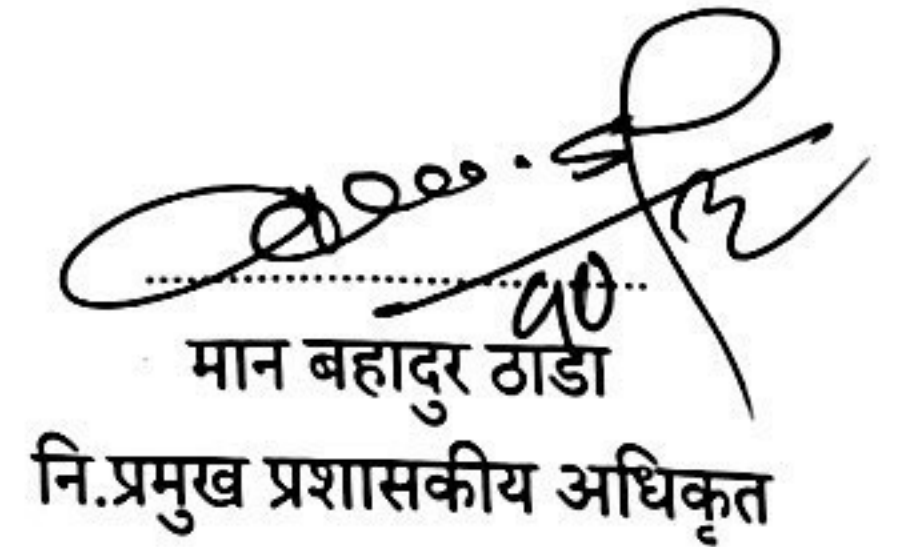 १०
मान बहादुर ठाडा
नि.प्रमुख प्रशासकीय अधिकृत